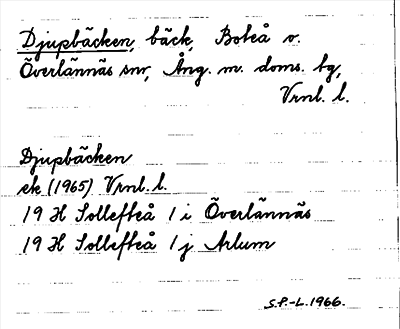 Djupbäcken, bäck, Boteå o.
Överlännäs snr, Ång. m. doms. bg,
Vrnl. l.
Djupbäcken
ek (1965) Vrnl. l.
19 H Sollefteå 1 i Överlännäs
19 H Sollefteå 1 j Arlum
S.P.-L. 1966.